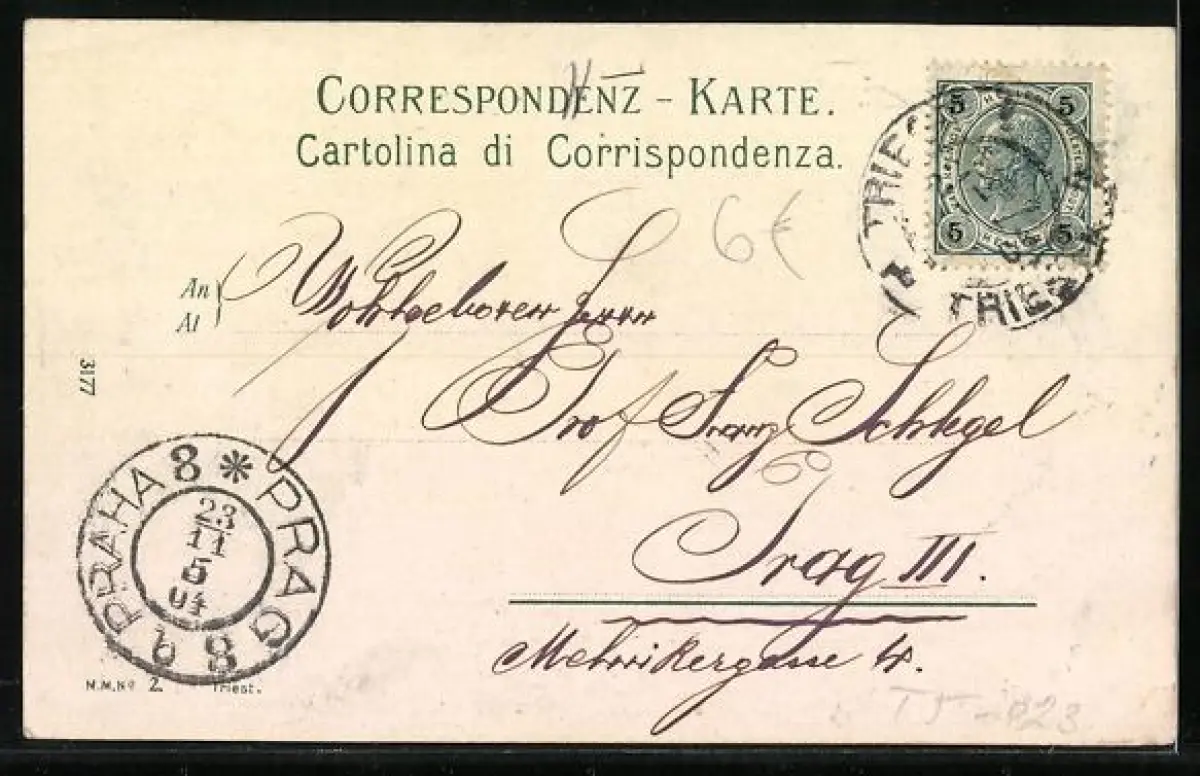 CORRESPONDENZ - KARTE.
Cartolina di Corrispondenza.
5 5
5 5
TRIES
TRIES
6€
An
Al
Wohlgeboren Herrn
Prof Franz Schlegel
Prag III.
Melnikergasse 4.
3177
PRAHA 8 * PRAG 8
23
11
5
04
N.M.No 2. Triest.